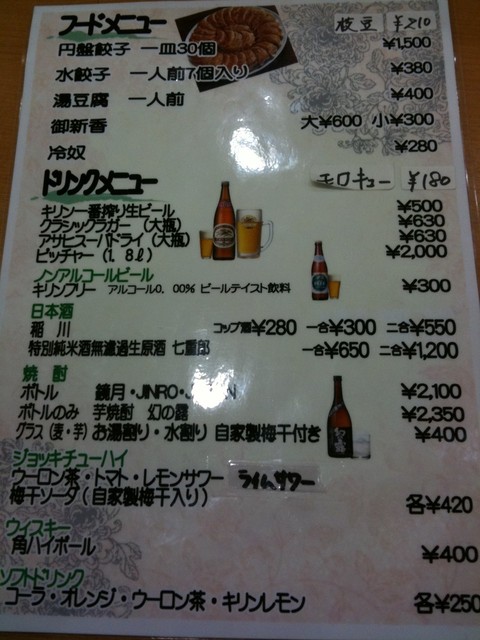 フードメニュー 枝豆 ¥210
円盤餃子 一皿30個 ¥1,500
水餃子 一人前7個入り ¥380
湯豆腐 一人前 ¥400
御新香 大¥600 小¥300
冷奴 ¥280
ドリンクメニュー モロキュー ¥180
キリン一番搾り生ビール ¥500
クラシックラガー（大瓶） ¥630
アサヒスーパードライ（大瓶） ¥630
ピッチャー（1.8ℓ） ¥2,000
ノンアルコールビール
キリンフリー アルコール0.00% ビールテイスト飲料 ¥300
日本酒
稲川 コップ酒¥280 一合¥300 二合¥550
特別純米酒無濾過生原酒 七重郎 一合¥650 二合¥1,200
焼酎
ボトル 鏡月・JINRO・ ¥2,100
ボトルのみ 芋焼酎 幻の露 ¥2,350
グラス（麦・芋）お湯割り・水割り 自家製梅干付き ¥400
ジョッキチューハイ
ウーロン茶・トマト・レモンサワー ライムサワー
梅干ソーダ（自家製梅干入り） 各¥420
ウィスキー
角ハイボール ¥400
ソフトドリンク
コーラ・オレンジ・ウーロン茶・キリンレモン 各¥250